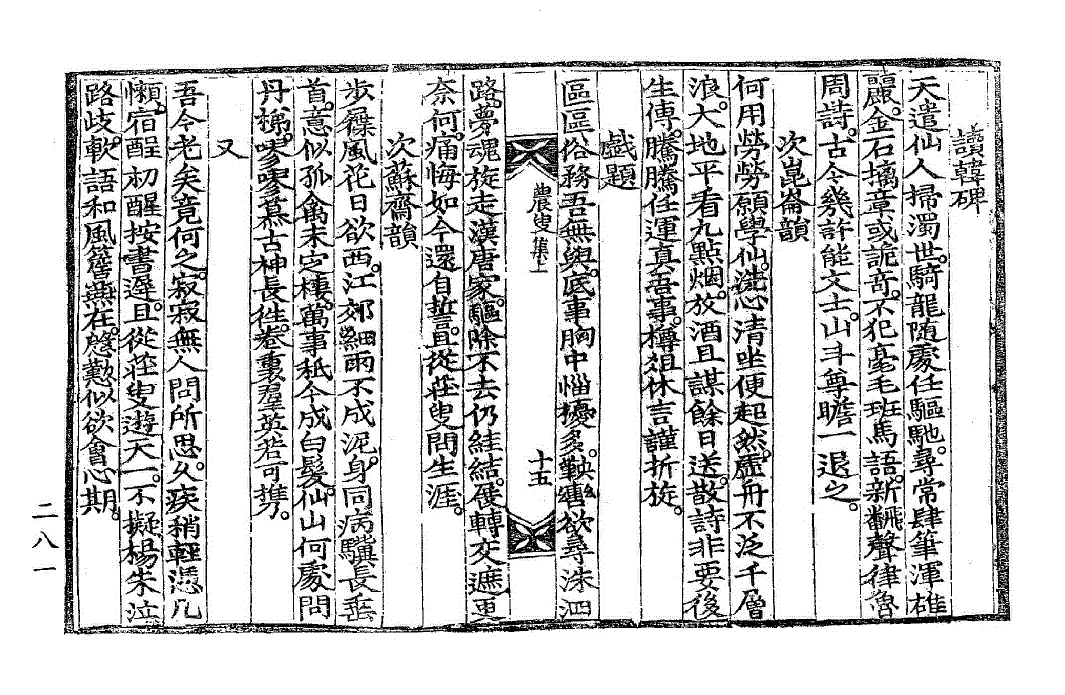 讀韓碑
天遣仙人掃濁世騎龍随處任驅馳尋常肆筆渾雄
麗金石摛章或詭奇不犯毫毛班馬語新飜聲律魯
周詩古今幾許能文士山斗尊瞻一退之
次崑崙韻
何用勞勞願學仙洗心清坐便超然虛舟不泛千層
浪大地平看九點烟放酒且謀餘日送散詩非要後
生傳騰騰任運真吾事樽俎休言謹折旋
戱題
區區俗務吾無與底事胸中惱擾多鞅欲尋洙泗
農叟集上
十五
路夢魂旋走漢唐家驅除不去仍絓結展轉交遮更
奈何痛悔如今還自誓且從莊叟問生涯
次蘇齋韻
步屧風花日欲西江郊細雨不成泥身同病驥長垂
首意似孤禽未㝎棲萬事秪今成白髮仙山何處問
丹梯嘐嘐慕古神長徃卷裏羣英若可携
又
吾今老矣竟何之寂寂無人問所思久疾稍輕憑几
懶宿酲初醒按書遲且從莊叟遊天一不擬楊朱泣
路歧軟語和風簷燕在慇懃似欲會心期
二八一